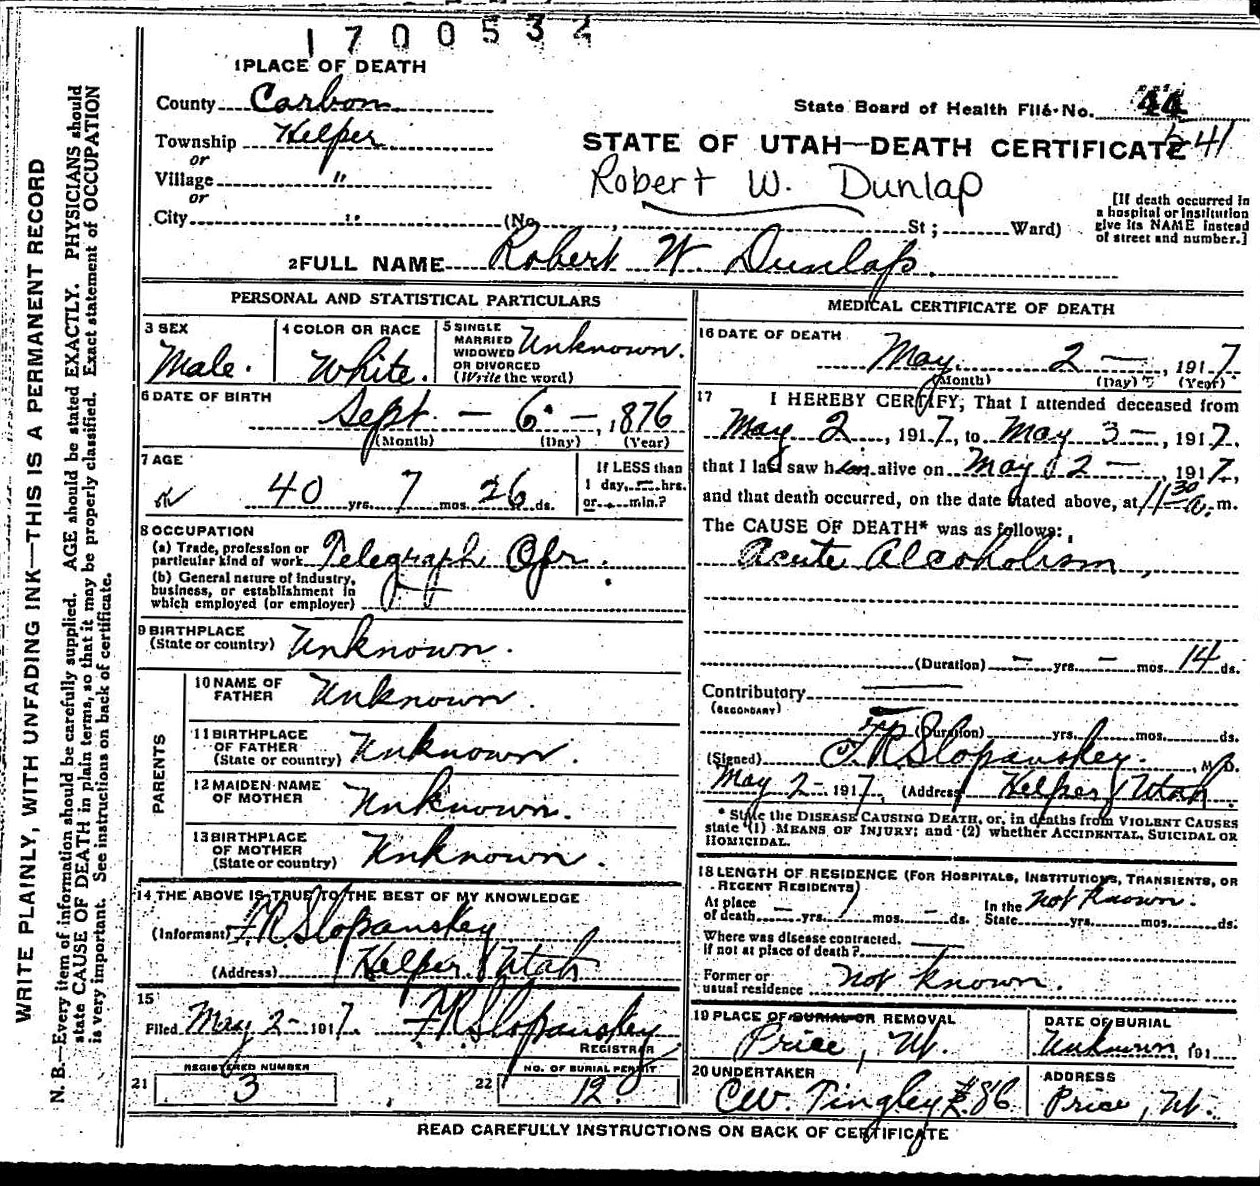 1700532
1 PLACE OF DEATH
County Carbon
State Board of Health File No. 44
Township Helper
STATE OF UTAH—DEATH CERTIFICATE
541
or
Village "
Robert W. Dunlap
or
City " (No. St; Ward)
[If death occurred in
a hospital or institution
give its NAME instead
of street and number.]
2 FULL NAME Robert W. Dunlap.
PERSONAL AND STATISTICAL PARTICULARS
3 SEX
Male.
4 COLOR OR RACE
White.
5 SINGLE
MARRIED
WIDOWED
OR DIVORCED
(Write the word)
Unknown.
6 DATE OF BIRTH
Sept. — 6 —, 1876
(Month) (Day) (Year)
7 AGE
40 yrs. 7 mos. 26 ds.
If LESS than
1 day, — hrs.
or — min.?
8 OCCUPATION
(a) Trade, profession or
particular kind of work Telegraph Opr.
(b) General nature of industry,
business, or establishment in
which employed (or employer)
9 BIRTHPLACE
(State or country) Unknown.
PARENTS
10 NAME OF
FATHER Unknown.
11 BIRTHPLACE
OF FATHER
(State or country) Unknown.
12 MAIDEN NAME
OF MOTHER Unknown.
13 BIRTHPLACE
OF MOTHER
(State or country) Unknown.
14 THE ABOVE IS TRUE TO THE BEST OF MY KNOWLEDGE
(Informant) F.R. Slopanskey
(Address) Helper Utah
15
Filed May 2 - 1917. F.R. Slopanskey
REGISTRAR
REGISTERED NUMBER
21 3
NO. OF BURIAL PERMIT
22 12.
MEDICAL CERTIFICATE OF DEATH
16 DATE OF DEATH
May 2 —, 1917
(Month) (Day) (Year)
17 I HEREBY CERTIFY, That I attended deceased from
May 2, 1917, to May 3 —, 1917,
that I last saw him alive on May 2 —, 1917,
and that death occurred, on the date stated above, at 11 30 a. m.
The CAUSE OF DEATH* was as follows:
Acute Alcoholism,
(Duration) — yrs. — mos. 14 ds.
Contributory
(SECONDARY)
(Duration) yrs. mos. ds.
(Signed) F.R. Slopanskey. M.D.
May 2 - 1917, (Address) Helper Utah.
* State the DISEASE CAUSING DEATH, or, in deaths from VIOLENT CAUSES
state (1) MEANS OF INJURY; and (2) whether ACCIDENTAL, SUICIDAL OR
HOMICIDAL.
18 LENGTH OF RESIDENCE (FOR HOSPITALS, INSTITUTIONS, TRANSIENTS, OR
RECENT RESIDENTS)
At place
of death — yrs. 1 mos. — ds.
In the
State yrs. mos. ds.
not known.
Where was disease contracted,
if not at place of death?
Former or
usual residence not known.
19 PLACE OF BURIAL OR REMOVAL
Price, Ut.
DATE OF BURIAL
Unknown, 191
20 UNDERTAKER
C.W. Tingley 86
ADDRESS
Price, Ut.
READ CAREFULLY INSTRUCTIONS ON BACK OF CERTIFICATE
WRITE PLAINLY, WITH UNFADING INK—THIS IS A PERMANENT RECORD
N. B.—Every item of information should be carefully supplied. AGE should be stated EXACTLY. PHYSICIANS should
state CAUSE OF DEATH in plain terms, so that it may be properly classified. Exact statement of OCCUPATION
is very important. See instructions on back of certificate.